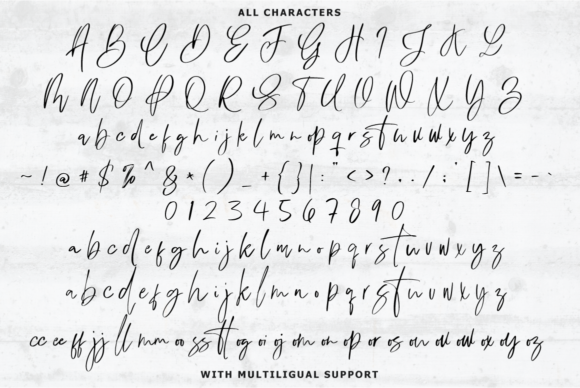 ALL CHARACTERS
A B C D E F G H I J K L
M N O P Q R S T U V W X Y Z
a b c d e f g h i j k l m n o p q r s t u v w x y z
~ ! @ # $ % ^ & * ( ) _ + { } | : " < > ? . . / ; ' [ ] \ = - `
0 1 2 3 4 5 6 7 8 9 0
a b c d e f g h i j k l m n o p q r s t u v w x y z
a b c d e f g h i j k l m n o p q r s t u v w x y z
cc ee ff jj ll mm oo ss tt og oi oj om on op or os ou ov ow ox oy oz
WITH MULTILIGUAL SUPPORT